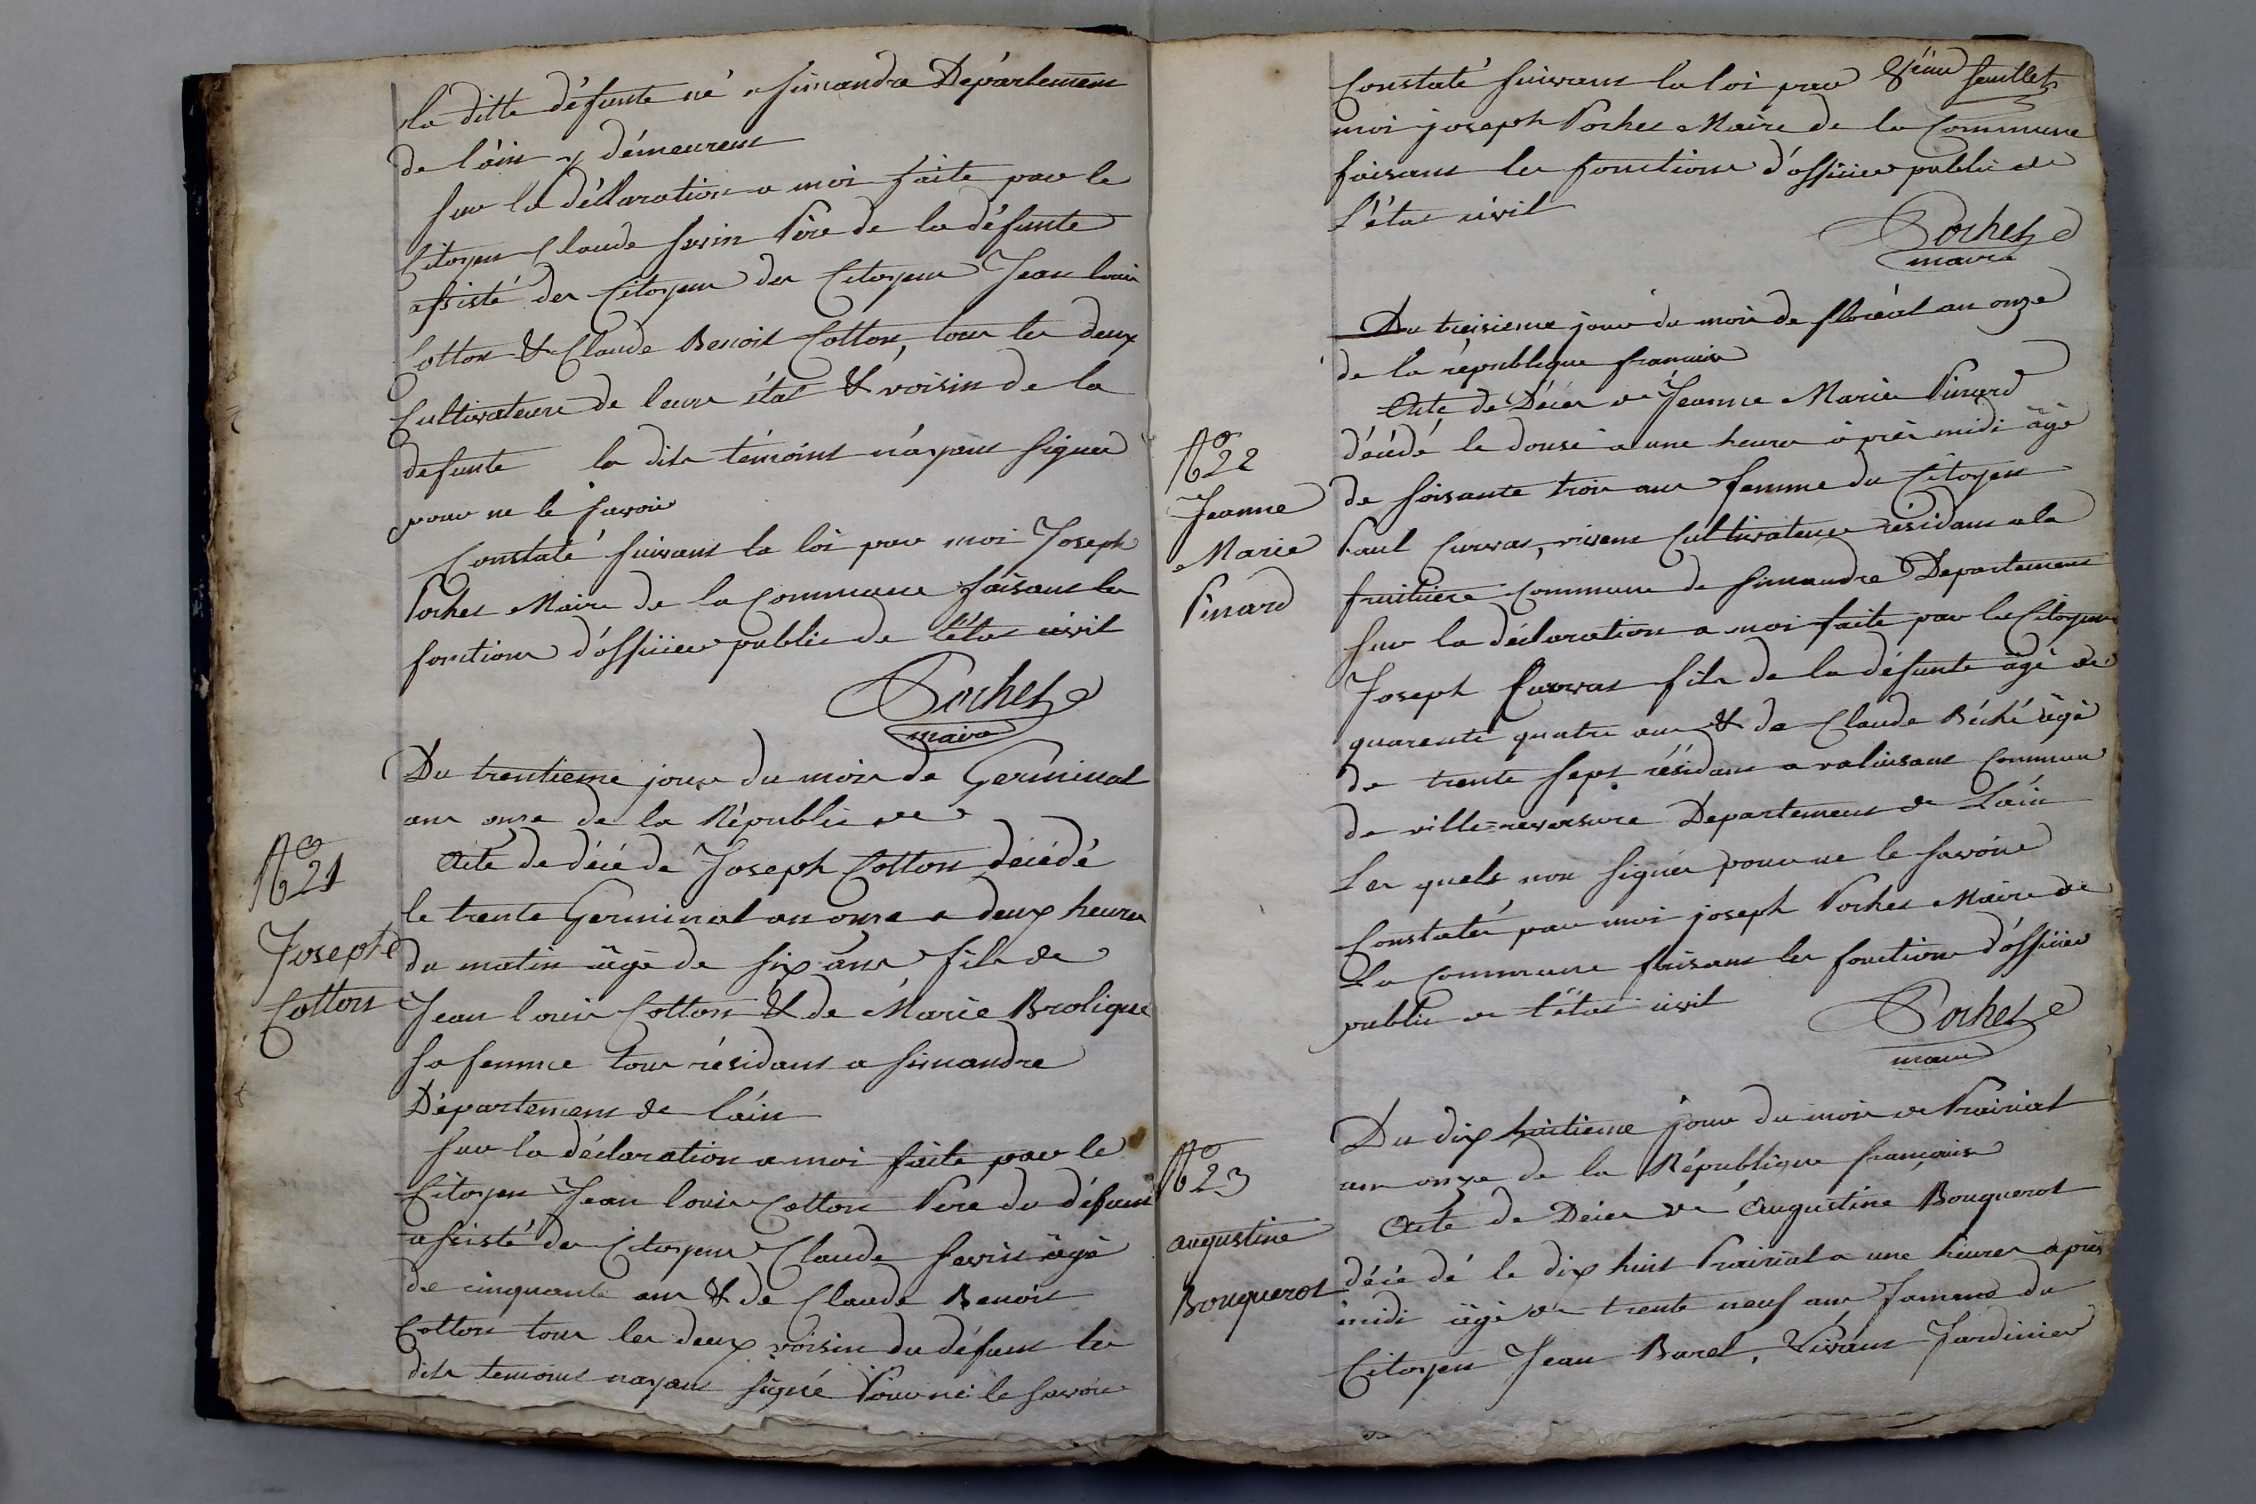 la ditte défunte né a simandre Département
de l'áin y démeurent
sur la déclaration a moi faite par le
Citoyen Claude Savin Pére de la défunte
assisté des Citoyens des Citoyens Jean louis
Cotton & Claude Benoit Cotton, tous les deux
Cultivateurs de leurs état & voisin de la
defunte la dits témoins n'áyant signer
pour ne le savoir
Constaté suivant la loi par moi Joseph
Pochet Maire de la Commune faisant les
fonctions d'officier public de l'état civil
Pochet
maire
Du trentieme jour du mois de Germinal
an onze de la Républic
N° 21
Joseph
Cotton
Acte de décé de Joseph Cotton décédé
le trente Germinal an onze a deux heures
du matin âgé de six ans fils de
Jean louis Cotton & de Marie Brolique
sa femme tous résidant a simandre
Département de l'áin
sur la déclaration a moi faite par le
Citoyen Jean louis Cotton Pere du défunt
assisté des Citoyens Claude Savin âgé
de cinquante ans & de Claude Benoit
Cotton tous les deux voisin du défunt les
dits temoins nayant signé Pour ne le savoir
8ieme feuillet
Constaté suivant la loi par
moi joseph Pochet Maire de la Commune
faisant les fonctions d'officier public de
l'état civil
Pochet
maire
Du treisieme jour du mois de floréal an onze
de la république francaise
N° 22
Jeanne
Marie
Pinard
Acte de Décés de Jeanne Marie Pinard
décédé le douse a une heure áprés midi âgé
de soisante trois ans femme du Citoyen
Paul Curvas, vivent Cultivateur résidant a la
fruitiere commune de simandre Departement
sur la déclaration a moi faite par les Citoyens
Joseph Curvas fils de la défunte âgé de
quarente quatre ans & de Claude Béché âgé
de trente sept résidant a valiusant commune
de ville=reversure Departement de L'áin
Les quels non signér pour ne le savoire
Constatér par moi joseph Pochet Maire de
La commune faisant les fonctions d'officier
public de l'état civil
Pochet
maire
Du dix huitieme jour du mois de Prairial
an onze de la République française
N° 23
augustine
Bouquerot
Acte de Décés de Augustine Bouquerot
décédé le dix huit Prairial a une heures aprés
midi âgé de trente neuf ans famme du
Citoyen Jean Barel, Vivant Jardinier